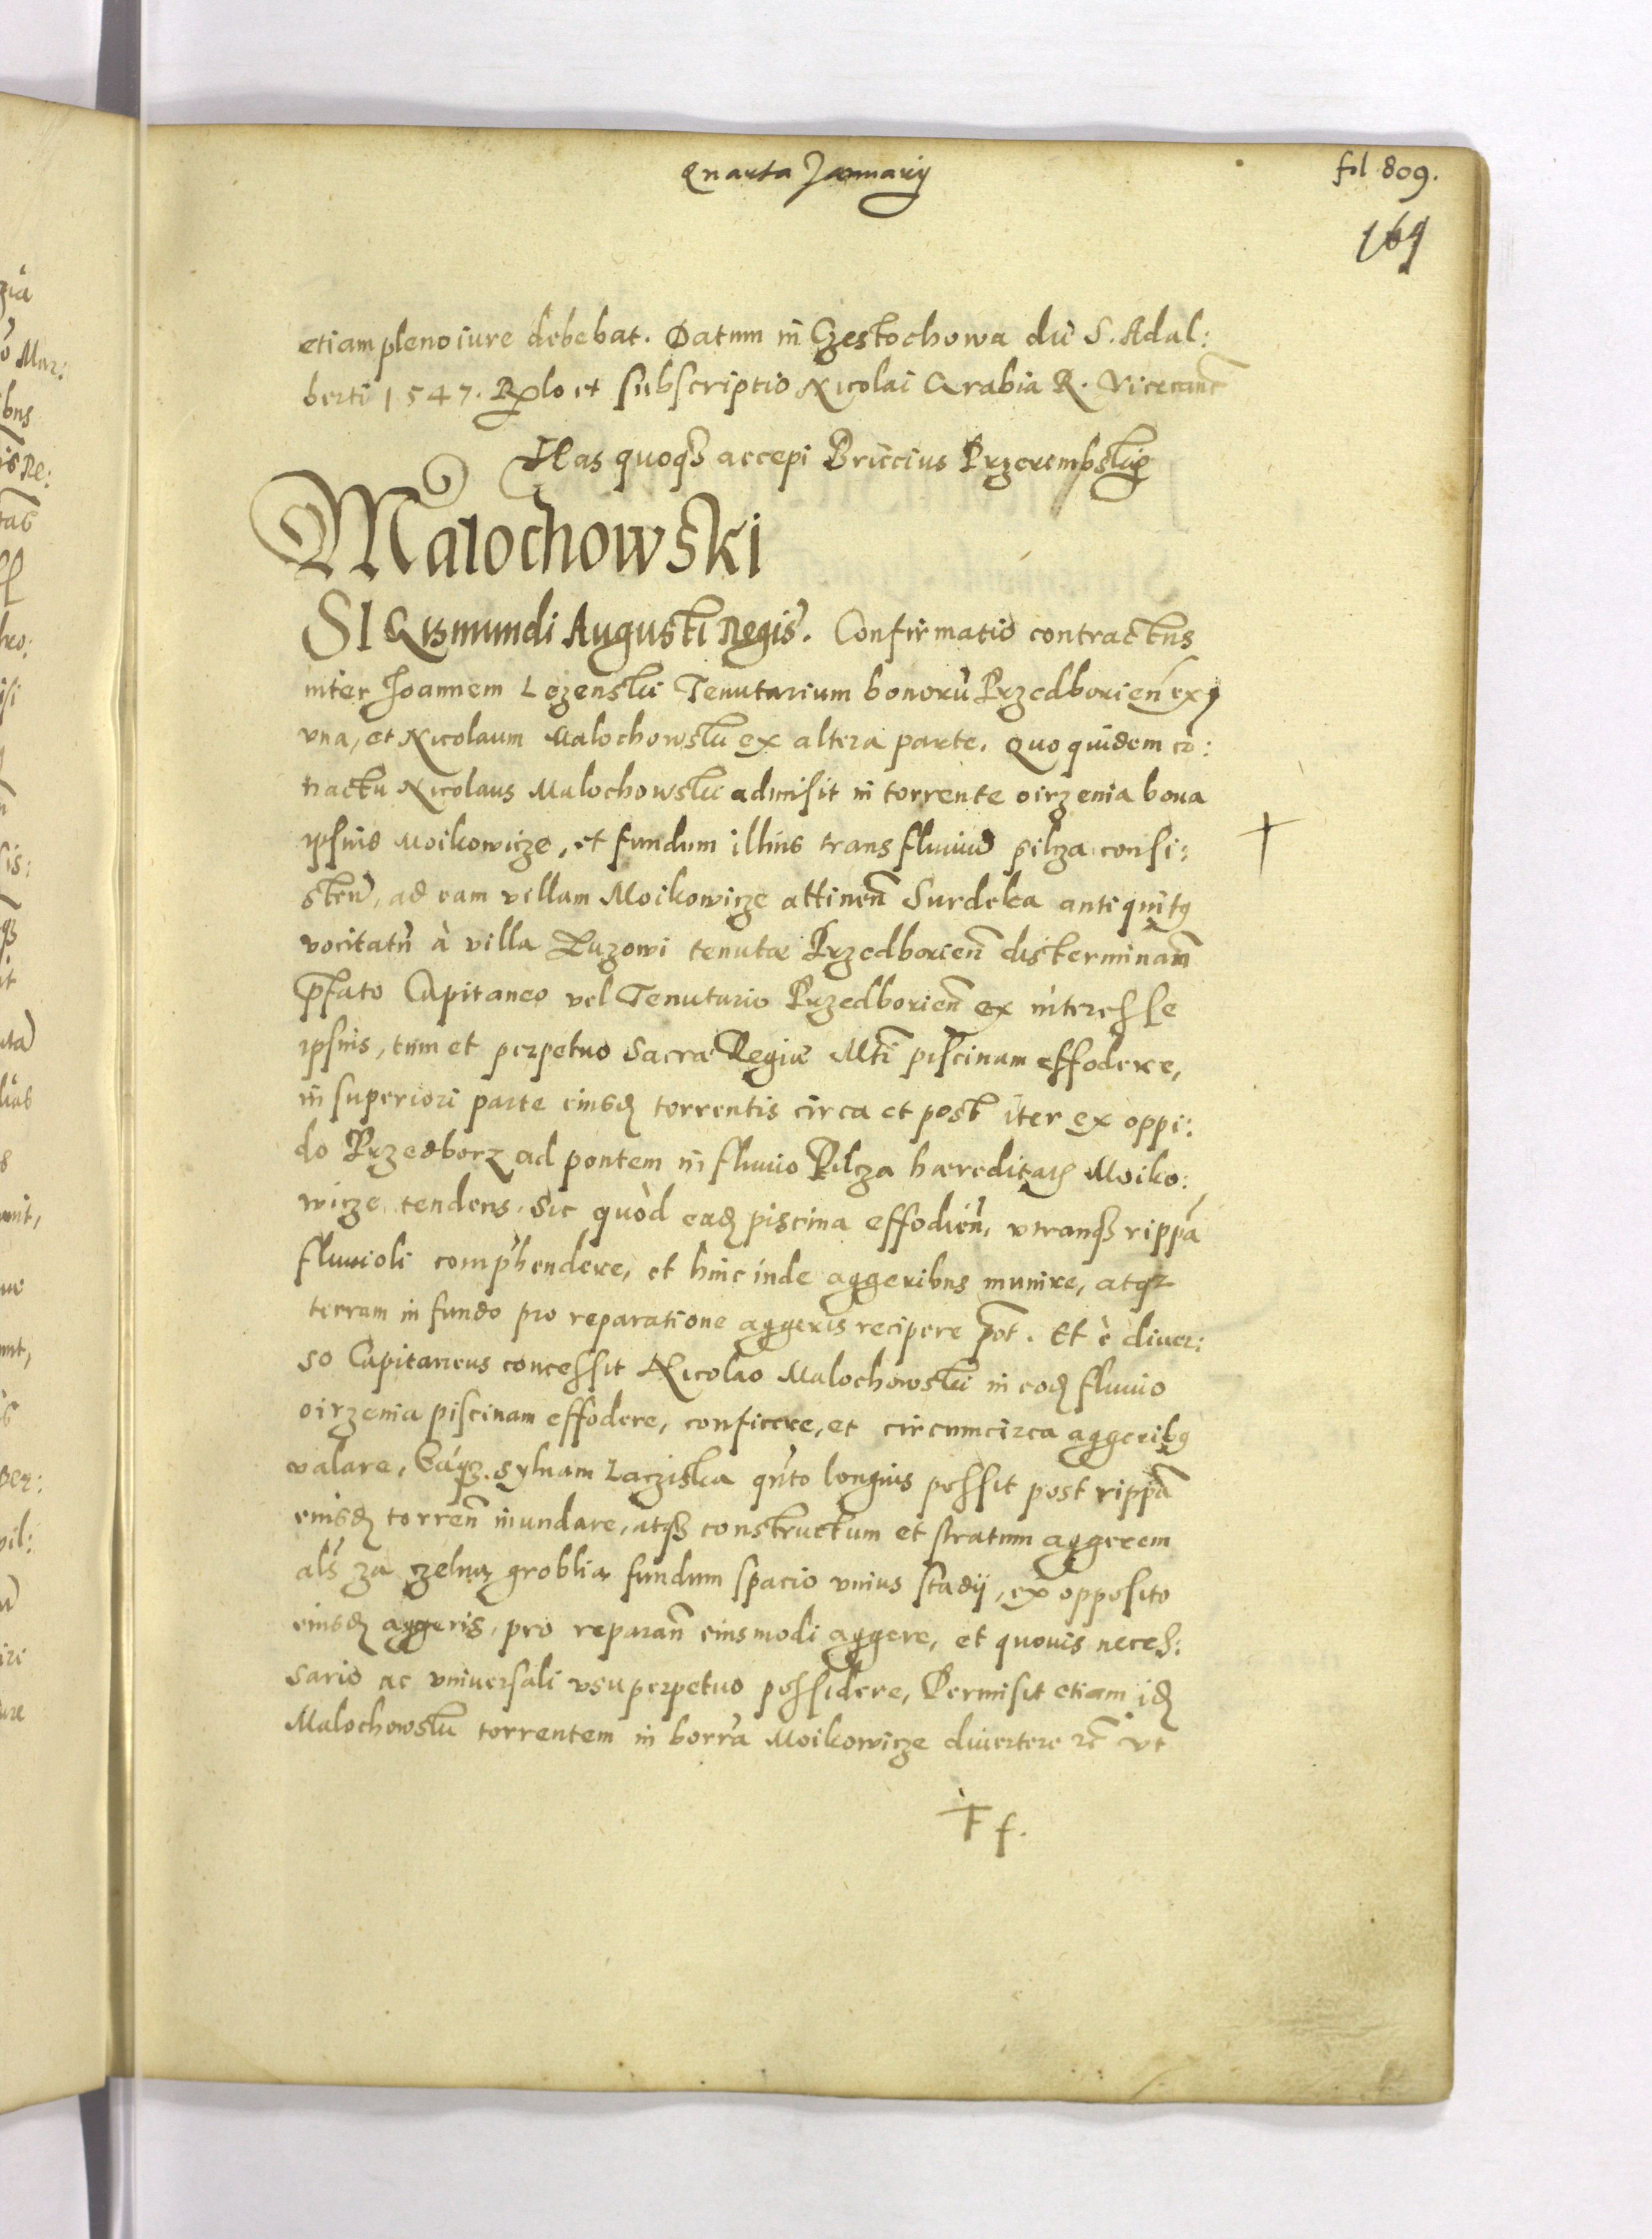 Quarta January
fol 809.
169
etiam pleno iure debebat. Datum in Czestochowa die S. Adal:
berti 1547. Rlo et subscriptio Nicolai Grabia R. Vicecanc
Has quoqз accepi Briccius Przerembsky
Malochowski
SIGISmundi Augusti Regis. Confirmatio contractus
inter Joannem Lezenski Tenutarium bonorū Przedborien ex
vna, et Nicolaum Malochowski ex altera parte. Quo quidem cō:
tractu Nicolaus Malochowski admisit in torrente oirzenia bona
ipsius Moikowicze, et fundum illius trans fluuiū pilcza consi:
sten, ad eam villam Moikowicze attinen Surdeka antiquitg
vocitatū à villa Luzowi tenutæ Przedborien disterminan
p̄fato Capitaneo vel Tenutario Przedborien ex interesse
ipsius, tum et perpetuo Sacræ Regiæ Mti piscinam effodere,
in superiori parte eiusd torrentis circa et post iter ex oppi:
do Przedborz ad pontem in fluuio Pilcza hæreditatis Moiko:
wicze tendens. Sic quòd ead piscina effodien, vtranqз rippā
fluuioli comp̄hendere, et hinc inde aggeribus munire, atqз
terram in fundo pro reparatione aggeris recipere p̄ot. Et è diuer:
so Capitaneus concessit Nicolao Malochowski in eod fluuio
oirzenia piscinam effodere, conficere, et circumcirca aggeribg
valare, Eáqз. syluam Lacziska qn̄to longius possit post rippā
eiusd torren inundare, atqз constructum et stratum aggerem
als za zelną groblią fundum spacio vnius stadij, ex opposito
eiusd aggeris, pro reparan eiusmodi aggere, et quouis neces:
sario ac vniuersali vsu perpetuo possidere, Permisit etiam id
Malochowski torrentem in borra Moikowicze diuertere rc vt
Ff.